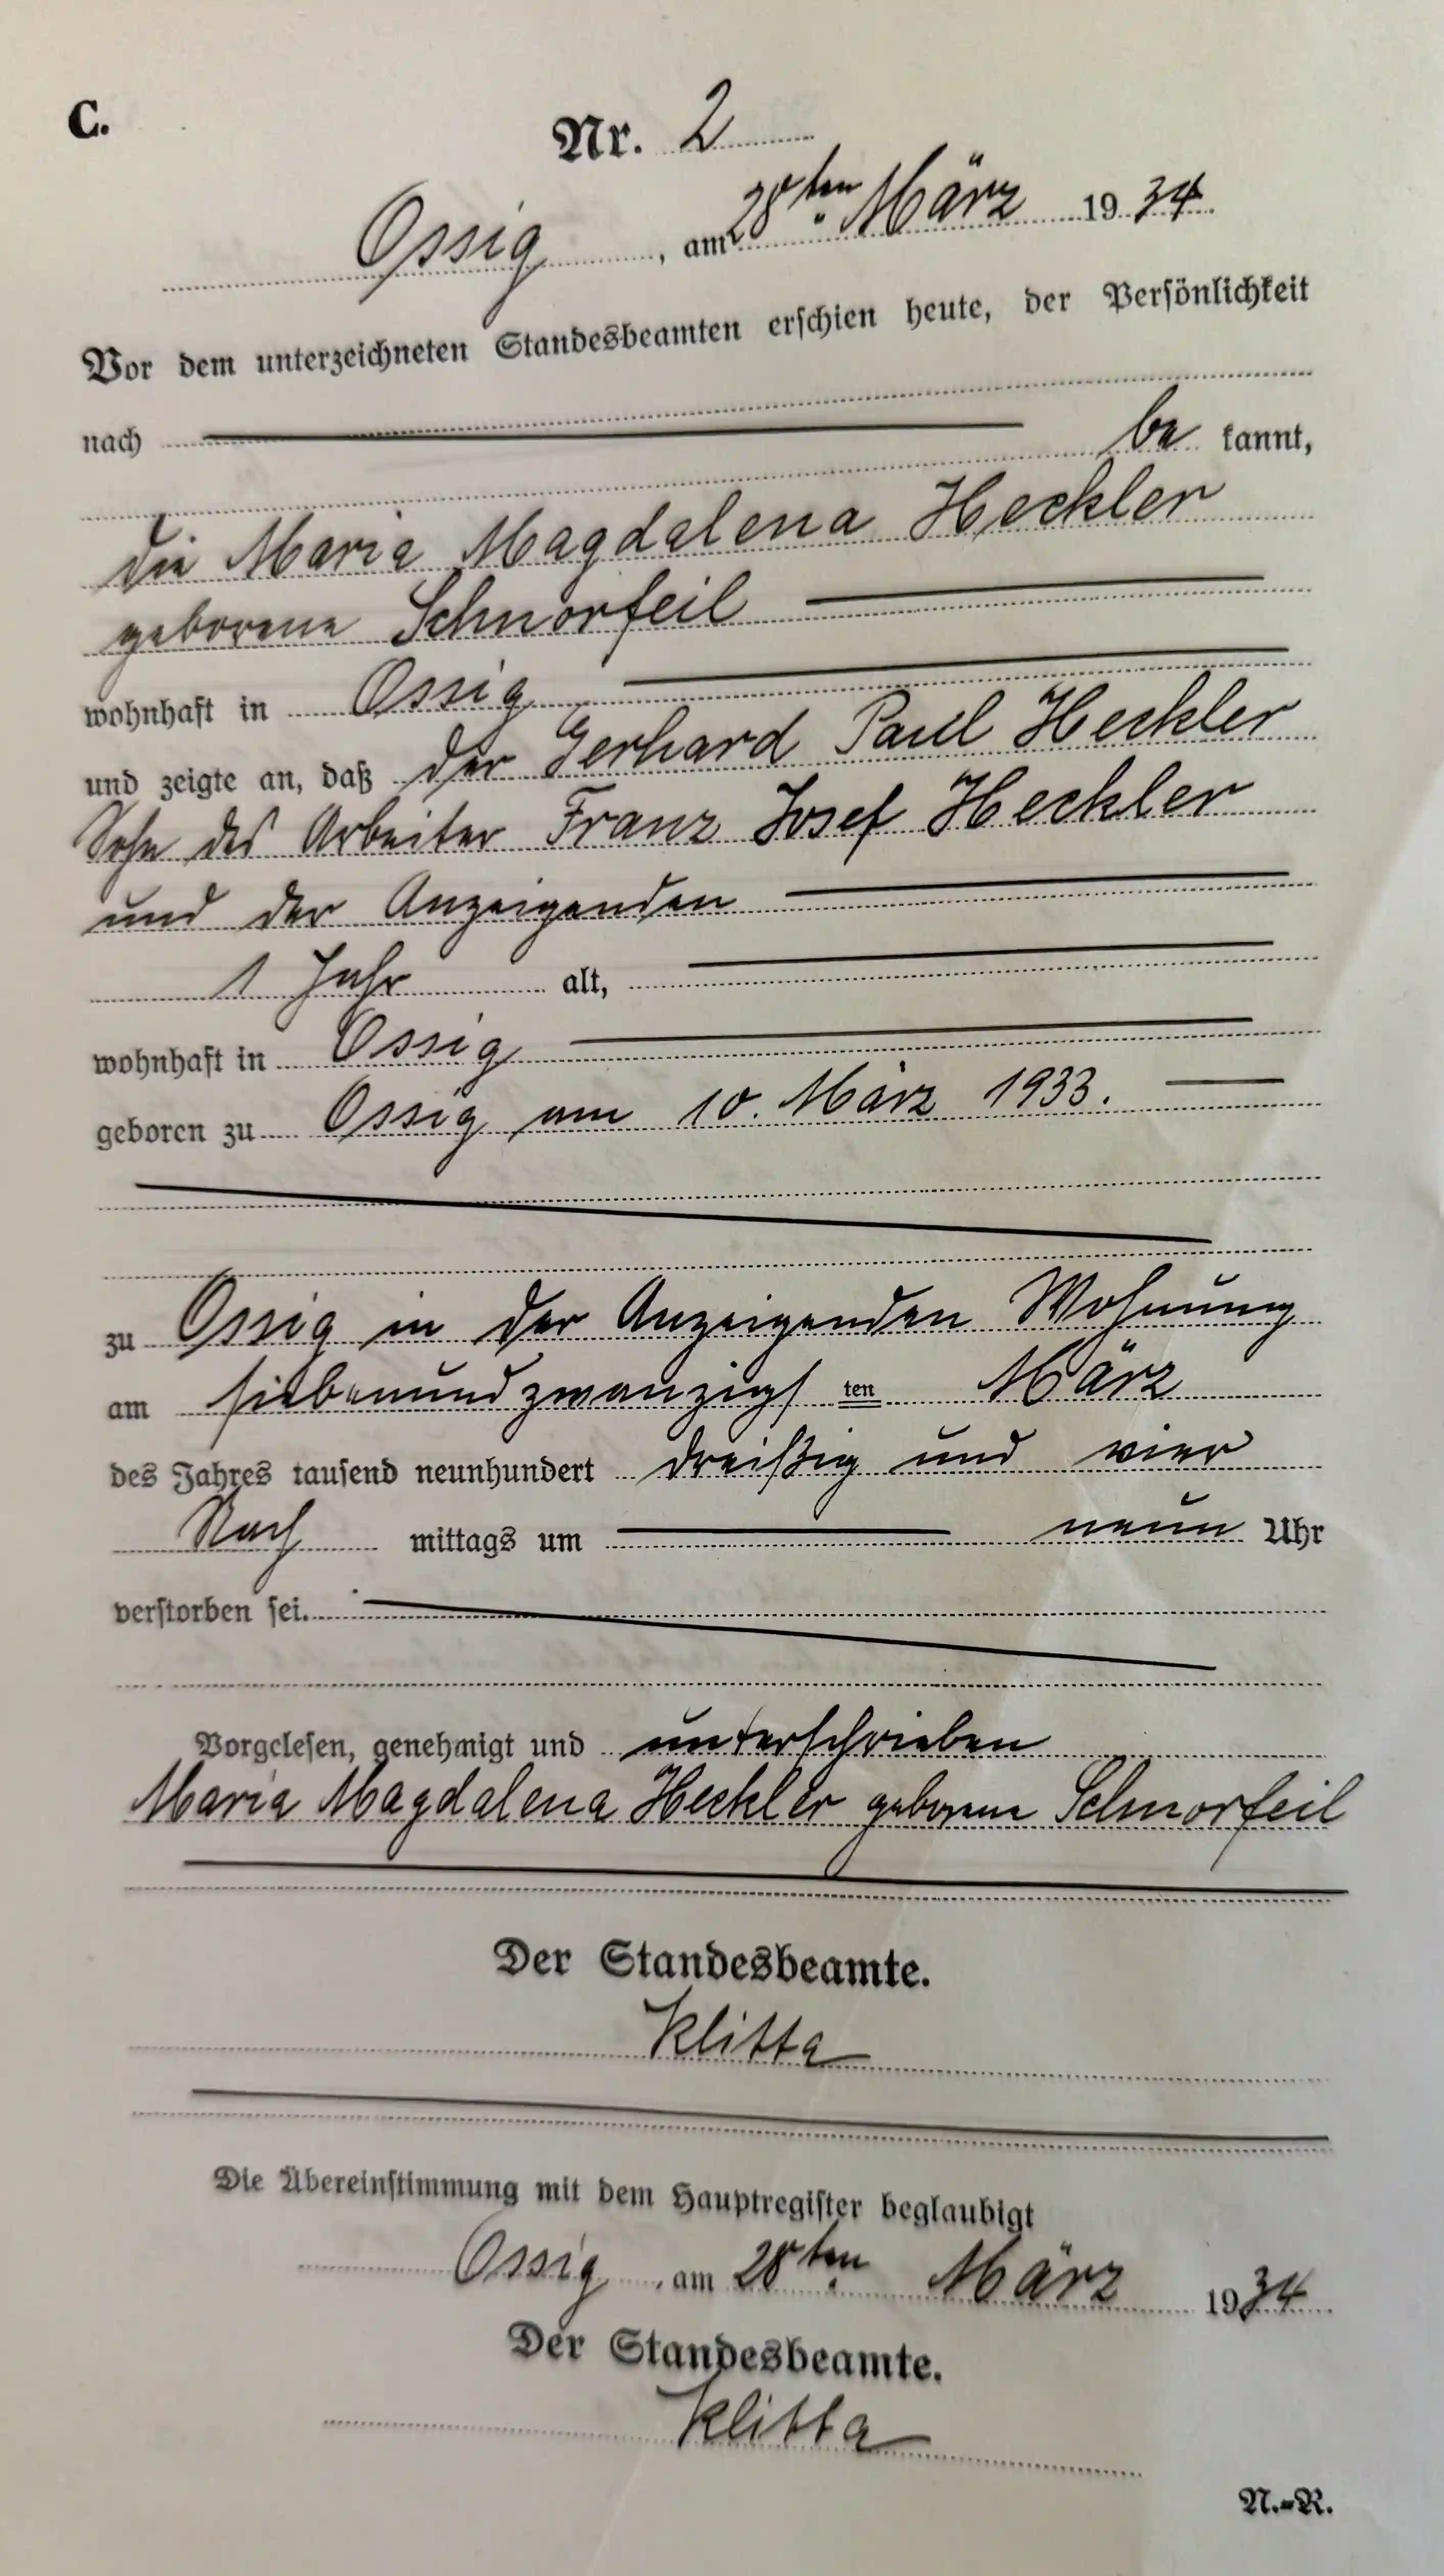 C.
Nr. 2
Ossig, am 28ten März 1934.
Vor dem unterzeichneten Standesbeamten erschien heute, der Persönlichkeit
nach be kannt,
die Maria Magdalena Heckler
geborene Schnorfeil
wohnhaft in Ossig
und zeigte an, daß der Gerhard Paul Heckler
Sohn des Arbeiter Franz Josef Heckler
und der Anzeigenden
1 Jahr alt,
wohnhaft in Ossig
geboren zu Ossig am 10. März 1933.
zu Ossig in der Anzeigenden Wohnung
am siebenundzwanzigs ten März
des Jahres tausend neunhundert dreißig und vier
Nach mittags um neun Uhr
verstorben sei.
Vorgelesen, genehmigt und unterschrieben
Maria Magdalena Heckler geborene Schnorfeil
Der Standesbeamte.
Klitta
Die Übereinstimmung mit dem Hauptregister beglaubigt
Ossig, am 28ten März 1934
Der Standesbeamte.
Klitta
N.-R.